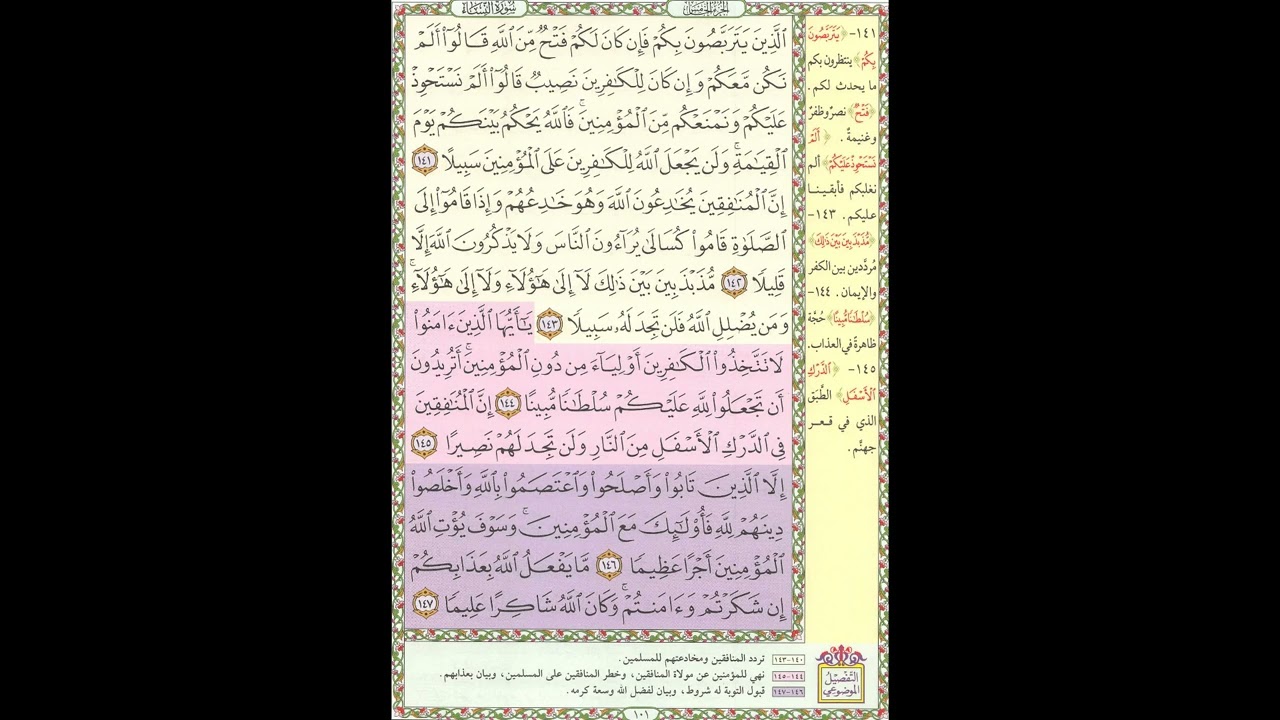 سُورَةُ النِّسَاءِ
الَّذِينَ يَتَرَبَّصُونَ بِكُمْ فَإِن كَانَ لَكُمْ فَتْحٌ مِّنَ اللَّهِ قَالُوٓا۟ أَلَمْ
نَكُن مَّعَكُمْ وَإِن كَانَ لِلْكَٰفِرِينَ نَصِيبٌ قَالُوٓا۟ أَلَمْ نَسْتَحْوِذْ
عَلَيْكُمْ وَنَمْنَعْكُم مِّنَ الْمُؤْمِنِينَ ۚ فَاللَّهُ يَحْكُمُ بَيْنَكُمْ يَوْمَ
الْقِيَٰمَةِ ۗ وَلَن يَجْعَلَ اللَّهُ لِلْكَٰفِرِينَ عَلَى الْمُؤْمِنِينَ سَبِيلًا ١٤١
إِنَّ الْمُنَٰفِقِينَ يُخَٰدِعُونَ اللَّهَ وَهُوَ خَٰدِعُهُمْ وَإِذَا قَامُوٓا۟ إِلَى
الصَّلَوٰةِ قَامُوا۟ كُسَالَىٰ يُرَآءُونَ النَّاسَ وَلَا يَذْكُرُونَ اللَّهَ إِلَّا
قَلِيلًا ١٤٢ مُّذَبْذَبِينَ بَيْنَ ذَٰلِكَ لَآ إِلَىٰ هَٰٓؤُلَآءِ وَلَآ إِلَىٰ هَٰٓؤُلَآءِ ۚ
وَمَن يُضْلِلِ اللَّهُ فَلَن تَجِدَ لَهُۥ سَبِيلًا ١٤٣ يَٰٓأَيُّهَا الَّذِينَ ءَامَنُوا۟
لَا تَتَّخِذُوا۟ الْكَٰفِرِينَ أَوْلِيَآءَ مِن دُونِ الْمُؤْمِنِينَ ۚ أَتُرِيدُونَ
أَن تَجْعَلُوا۟ لِلَّهِ عَلَيْكُمْ سُلْطَٰنًا مُّبِينًا ١٤٤ إِنَّ الْمُنَٰفِقِينَ
فِى الدَّرْكِ الْأَسْفَلِ مِنَ النَّارِ وَلَن تَجِدَ لَهُمْ نَصِيرًا ١٤٥
إِلَّا الَّذِينَ تَابُوا۟ وَأَصْلَحُوا۟ وَاعْتَصَمُوا۟ بِاللَّهِ وَأَخْلَصُوا۟
دِينَهُمْ لِلَّهِ فَأُو۟لَٰٓئِكَ مَعَ الْمُؤْمِنِينَ ۖ وَسَوْفَ يُؤْتِ اللَّهُ
الْمُؤْمِنِينَ أَجْرًا عَظِيمًا ١٤٦ مَّا يَفْعَلُ اللَّهُ بِعَذَابِكُمْ
إِن شَكَرْتُمْ وَءَامَنتُمْ ۚ وَكَانَ اللَّهُ شَاكِرًا عَلِيمًا ١٤٧
١٤١- ﴿يَتَرَبَّصُونَ
بِكُمْ﴾ ينتظرون بكم
ما يحدث لكم.
﴿فَتْحٌ﴾ نصرٌ وظفرٌ
وغنيمةٌ. ﴿أَلَمْ
نَسْتَحْوِذْ عَلَيْكُمْ﴾ ألم
نغلبكم فأبقينا
عليكم. ١٤٣-
﴿مُّذَبْذَبِينَ بَيْنَ ذَٰلِكَ﴾
مُردَّدين بين الكفر
والإيمان. ١٤٤-
﴿سُلْطَٰنًا مُّبِينًا﴾ حُجَّة
ظاهرةً في العذاب.
١٤٥- ﴿الدَّرْكِ
الْأَسْفَلِ﴾ الطَّبَق
الذي في قعر
جهنَّم.
التَّفْصِيلُ
المَوْضُوعِي
١٤٠-١٤٣ تردد المنافقين ومخادعتهم للمسلمين.
١٤٤-١٤٥ نهي للمؤمنين عن مولاة المنافقين، وخطر المنافقين على المسلمين، وبيان بعذابهم.
١٤٦-١٤٧ قبول التوبة له شروط، وبيان لفضل الله وسعة كرمه.
١٠١